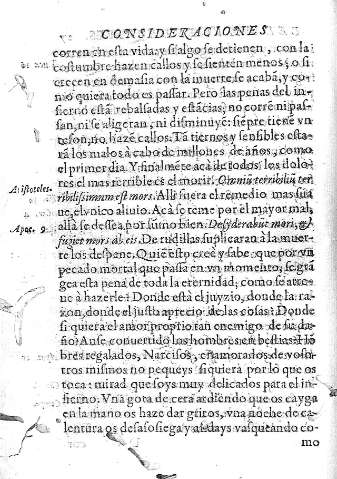 CONSIDERACIONES
corren en esta vida: y si algo se detienen, con la
costumbre hazen callos y se sienten menos; o si
crecen en demasia con la muerte se acabā, y co-
mo quiera todo es passar. Pero las penas del in-
fierno estā rebalsadas y estācias, no corrē ni pas-
san, ni se aligeran, ni disminuyē: siēpre tiene vn
teson, no hazē callos. Tā tiernos y sensibles esta-
rā los malos a cabo de millones de años, como
el primer dia. Y finalmēte acà de todos los dolo-
Aristoteles. res el mas terrible es el morir. Omniū terribiliū ter-
ribilissimum est mors. Alli fuera el remedio mas sua
ue, el vnico aliuio. Acà se teme por el mayor mal,
Apoc. 9. allà se dessea por sumo bien. Desyderabūt mori, &
fugiet mors ab eis. De rudillas suplicaran à la muer-
te los despene. Quiē esto cree y sabe que por vn
pecado mortal que passa en vn momēto, se grā
gea esta pena de toda la eternidad, como se atre-
ue à hazerle? Donde està el juyzio, donde la ra-
zon, donde el justo aprecio de las cosas? Donde
si quiera el amor proprio tan enemigo de su da-
ño? Anse conuertido los hombres en bestias? Hō
bres regalados, Narcisos, enamorados de voso-
tros mismos no pequeys siquiera por lo que os
toca: mirad que soys muy delicados para el in-
fierno. Vna gota de cera ardiendo que os cayga
en la mano os haze dar gritos, vna noche de ca-
lentura os desasosiega y andays vasqueando co-
mo